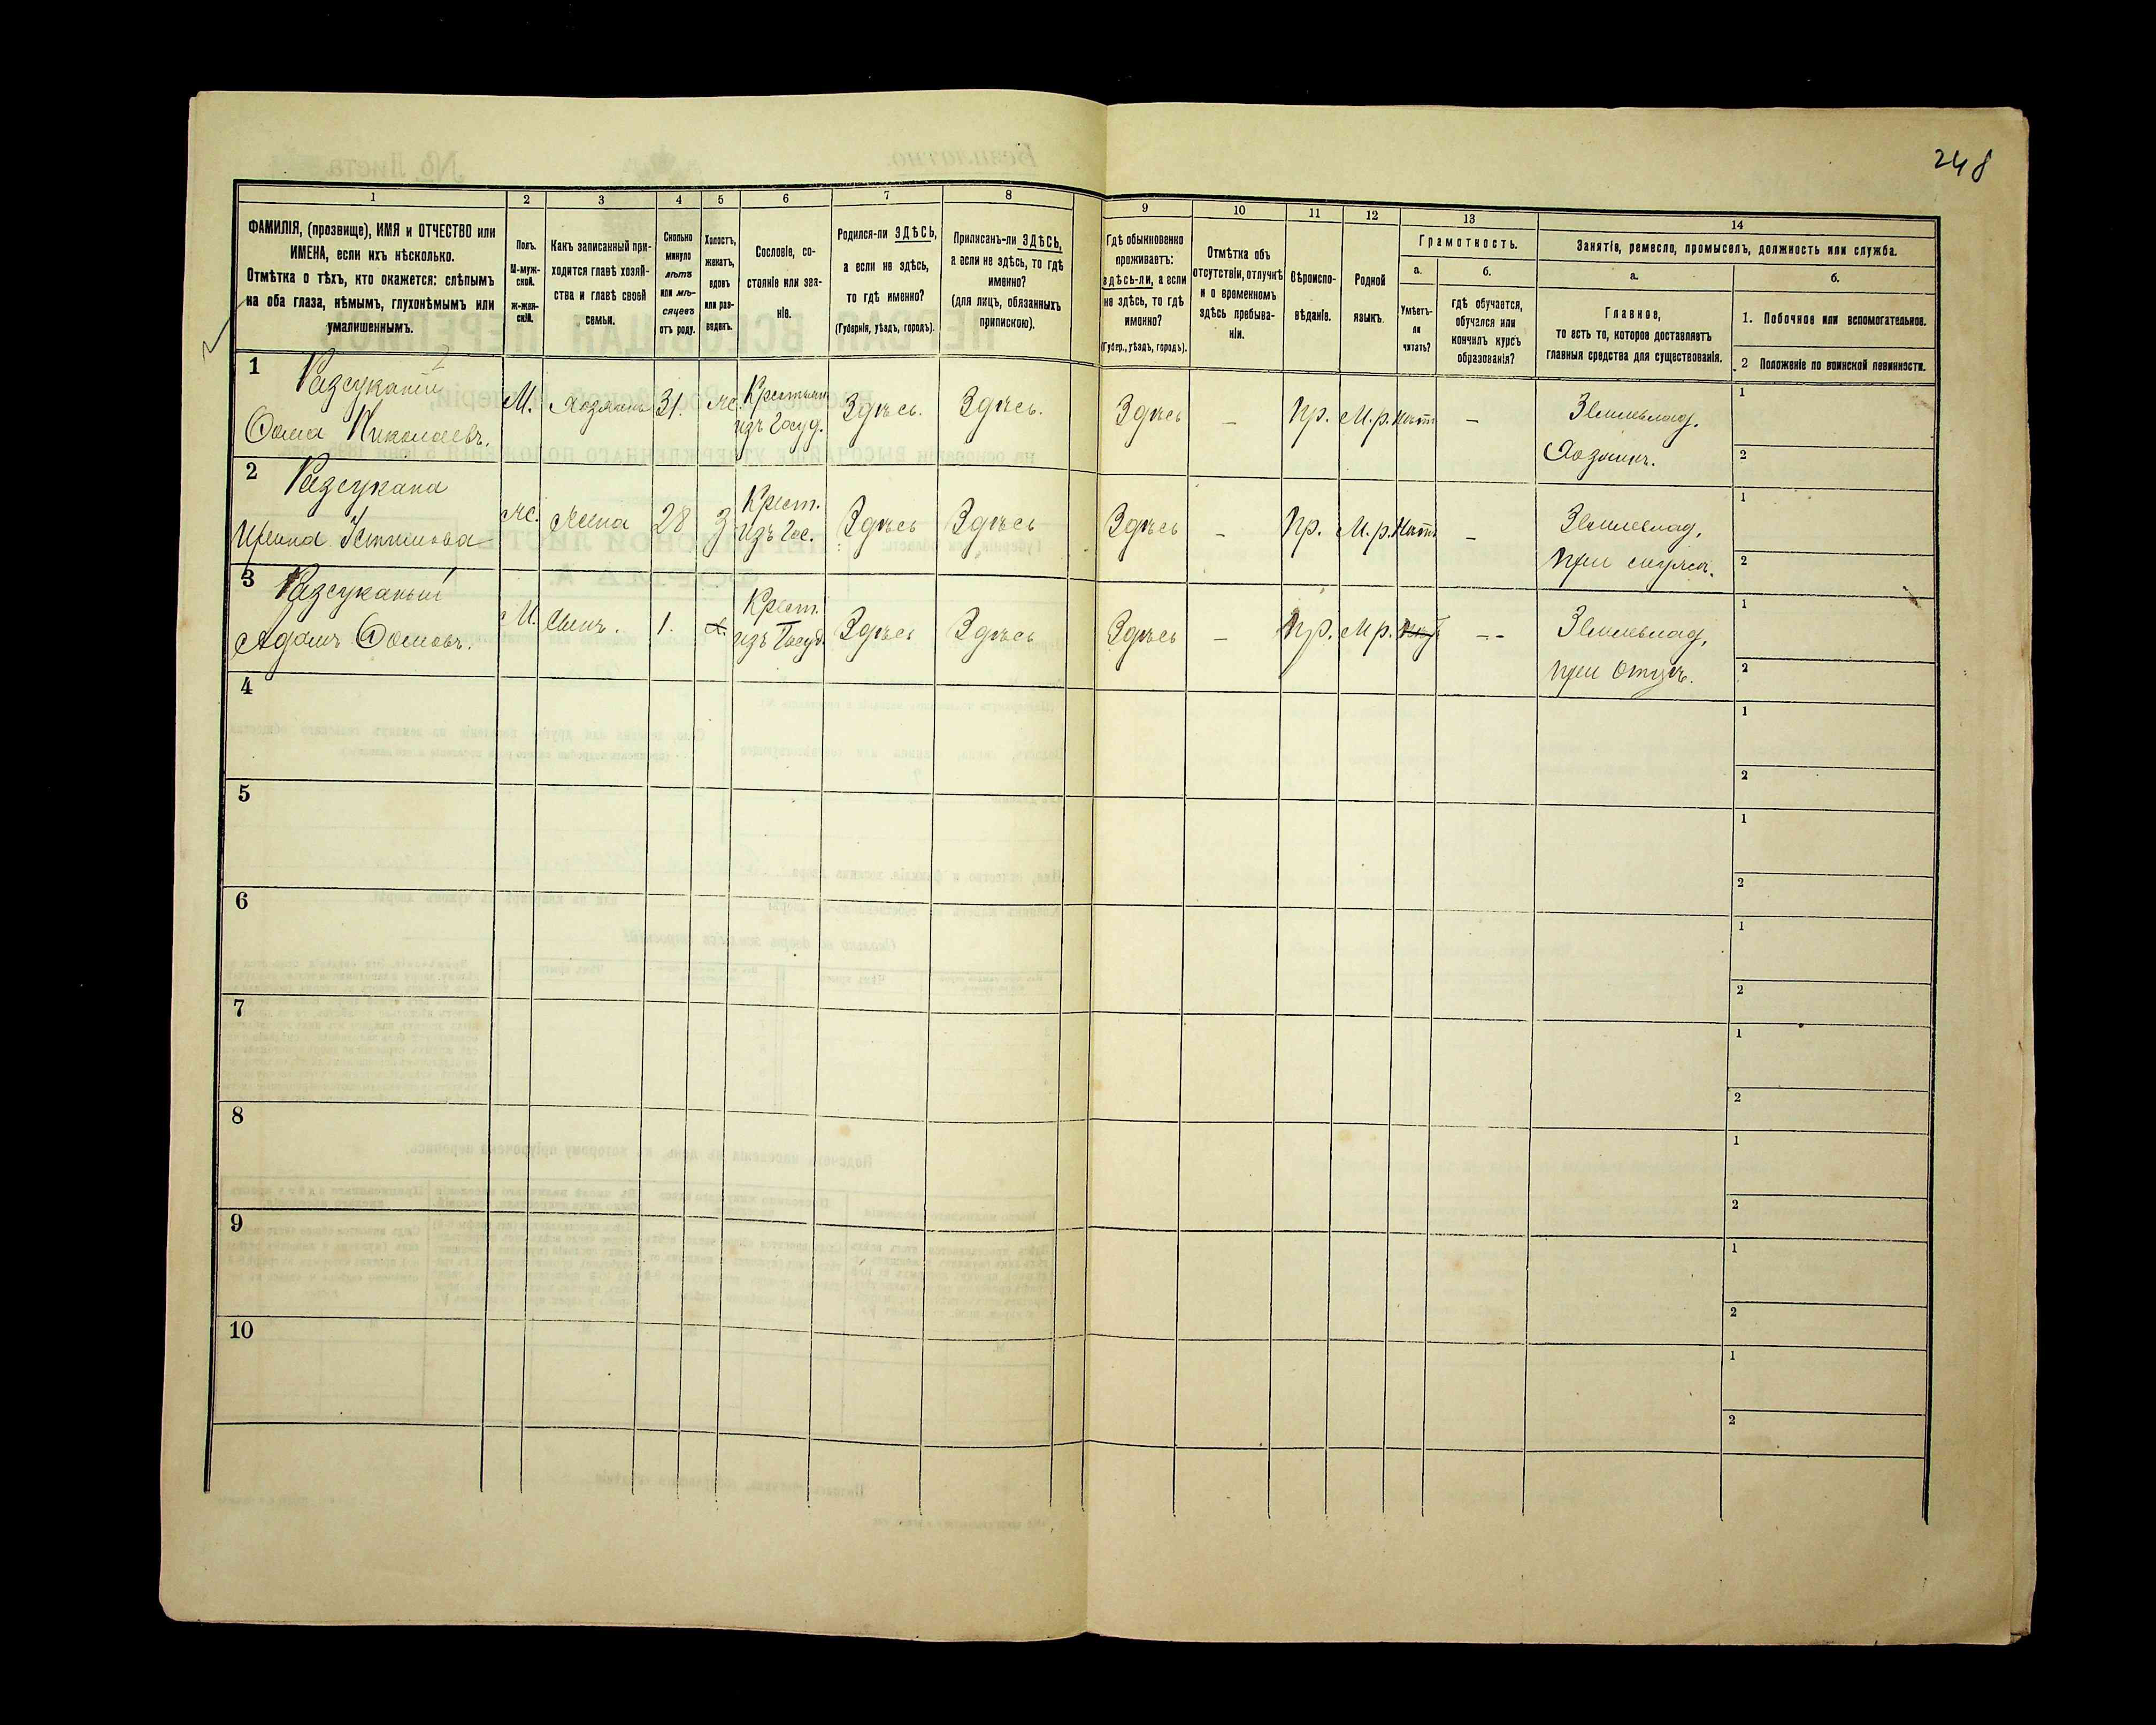 248
1 2 3 4 5 6 7 8 9 10 11 12 13 14
ФАМИЛІЯ, (прозвище), ИМЯ и ОТЧЕСТВО или
ИМЕНА, если ихъ нѣсколько.
Отмѣтка о тѣхъ, кто окажется: слѣпымъ
на оба глаза, нѣмымъ, глухонѣмымъ или
умалишеннымъ.
Полъ.
М-муж-
ской.
ж-жен-
скій.
Какъ записанный при-
ходится главѣ хозяй-
ства и главѣ своей
семьи.
Сколько
минуло
лѣтъ
или мѣ-
сяцевъ
отъ роду.
Холостъ,
женатъ,
вдовъ
или раз-
веденъ.
Сословіе, со-
стояніе или зва-
ніе.
Родился-ли ЗДѢСЬ,
а если не здѣсь,
то гдѣ именно?
(Губернія, уѣздъ, городъ).
Приписанъ-ли ЗДѢСЬ,
а если не здѣсь, то гдѣ
именно?
(для лицъ, обязанныхъ
припискою).
Гдѣ обыкновенно
проживаетъ:
здѣсь-ли, а если
не здѣсь, то гдѣ
именно?
(Губер., уѣздъ, городъ).
Отмѣтка объ
отсутствіи, отлучкѣ
и о временномъ
здѣсь пребыва-
ніи.
Вѣроиспо-
вѣданіе.
Родной
языкъ.
Грамотность.
а.
Умѣетъ-
ли
читать?
б.
гдѣ обучается,
обучался или
кончилъ курсъ
образованія?
Занятіе, ремесло, промыселъ, должность или служба.
а.
Главное,
то есть то, которое доставляетъ
главныя средства для существованія.
б.
1. Побочное или вспомогательное.
2 Положеніе по воинской повинности.
1 Разсуканый М. Хозяинъ 31. Ж. Крестьян. Здѣсь. Здѣсь. Здѣсь — Пр. М.р. Нѣтъ — Землевлад. 1
Ѳома Николаевъ. изъ Госуд. Хозяинъ. 2
2 Разсукана Ж. Жена 28 З Крест. Здѣсь Здѣсь Здѣсь — Пр. М.р. Нѣтъ — Землевлад, 1
Ирина Устинова изъ Гос. при мужѣ. 2
3 Разсуканый М. Сынъ. 1. х. Крест. Здѣсь Здѣсь Здѣсь — Пр. М р. — - Землевлад, 1
Адамъ Ѳомовъ. изъ Госуд. при Отцѣ. 2
4 1
2
5 1
2
6 1
2
7 1
2
8 1
2
9 1
2
10 1
2